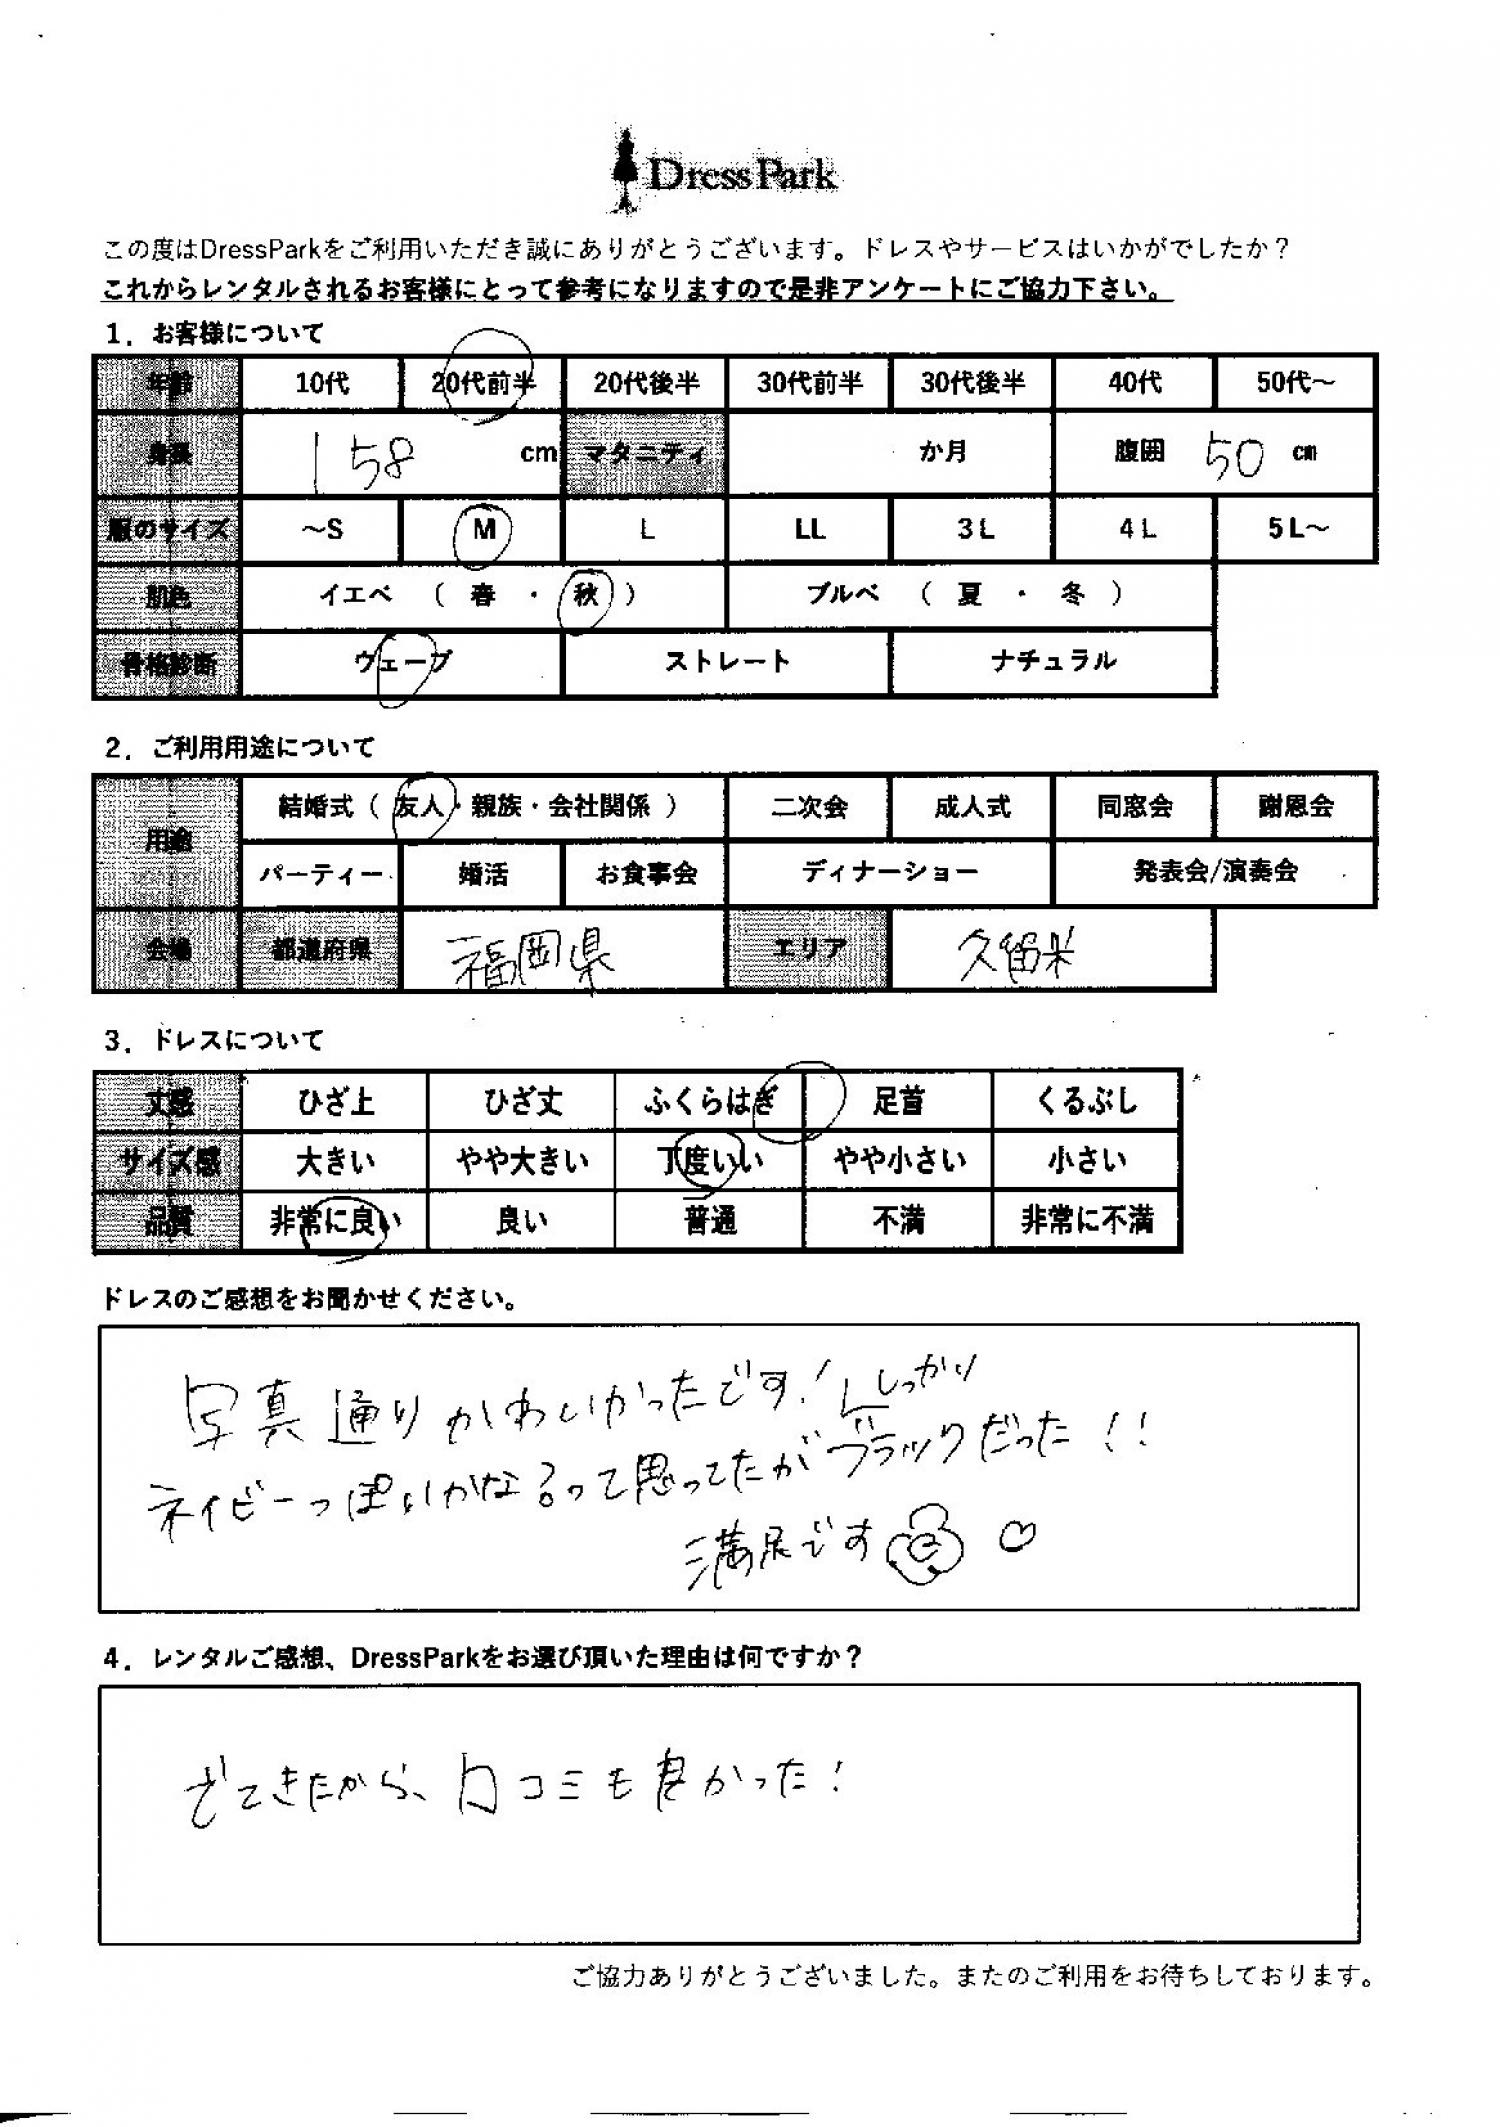 DressPark
この度はDressParkをご利用いただき誠にありがとうございます。ドレスやサービスはいかがでしたか？
これからレンタルされるお客様にとって参考になりますので是非アンケートにご協力下さい。
1．お客様について
年齢 10代 20代前半 20代後半 30代前半 30代後半 40代 50代～
身長 158 cm マタニティ か月 腹囲 50 cm
服のサイズ ～S M L LL 3L 4L 5L～
肌色 イエベ （ 春 ・ 秋 ） ブルベ （ 夏 ・ 冬 ）
骨格診断 ウェーブ ストレート ナチュラル
2．ご利用用途について
用途 結婚式（ 友人・親族・会社関係 ） 二次会 成人式 同窓会 謝恩会
パーティー 婚活 お食事会 ディナーショー 発表会/演奏会
会場 都道府県 福岡県 エリア 久留米
3．ドレスについて
丈感 ひざ上 ひざ丈 ふくらはぎ 足首 くるぶし
サイズ感 大きい やや大きい 丁度いい やや小さい 小さい
品質 非常に良い 良い 普通 不満 非常に不満
ドレスのご感想をお聞かせください。
写真通りかわいかったです！しっかり
ネイビーっぽいかな？って思ってたがブラックだった！！
満足です
4．レンタルご感想、DressParkをお選び頂いた理由は何ですか？
でてきたから、口コミも良かった！
ご協力ありがとうございました。またのご利用をお待ちしております。